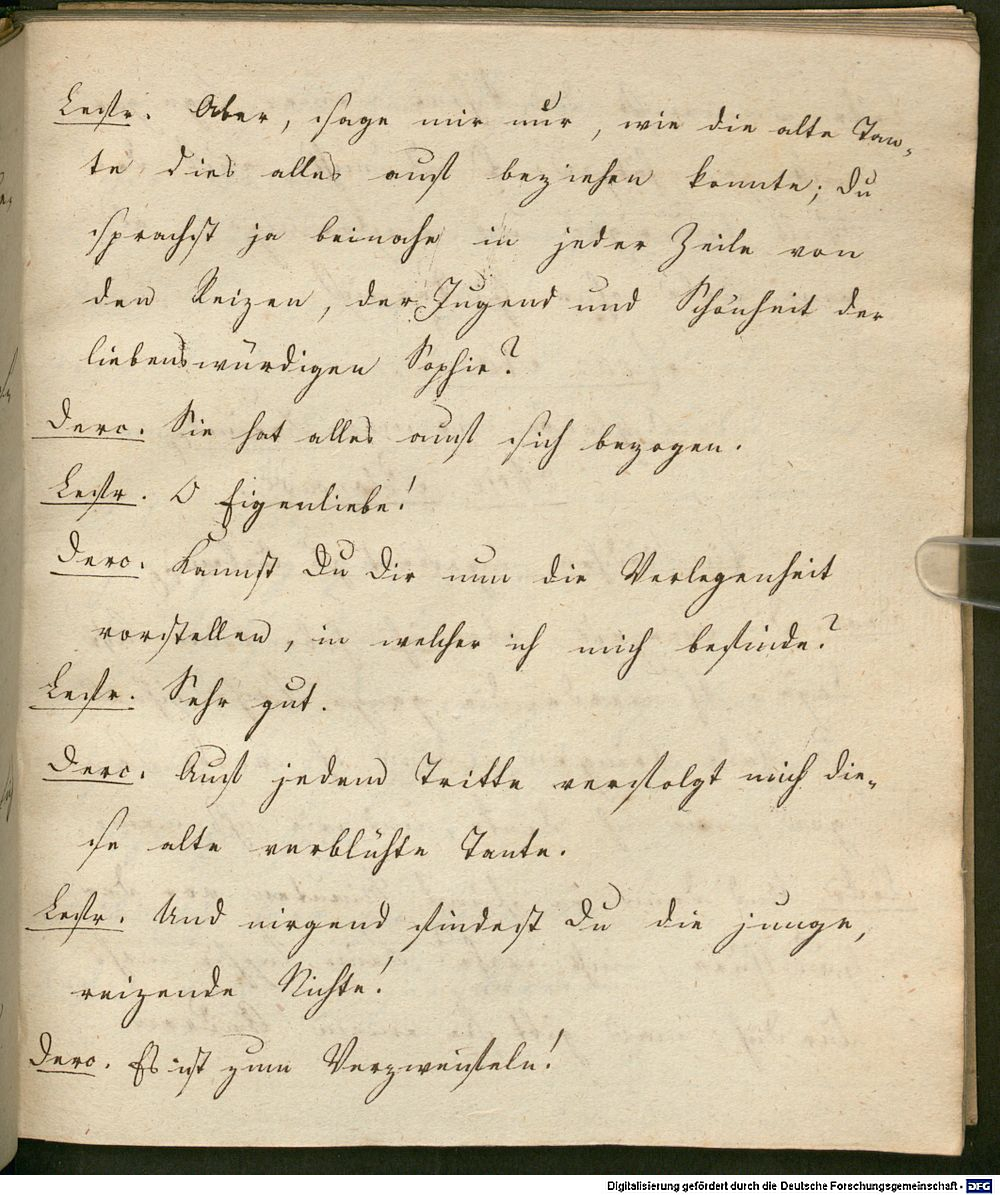 Lestr. Aber, sage mir nur, wie die alte Tan-
te dies alles auf beziehen konnte; Du
sprachst ja beinahe in jeder Zeile von
den Reizen, der Jugend und Schönheit der
liebenswürdigen Sophie?
Derc. Sie hat alles auf sich bezogen.
Lestr. O Eigenliebe!
Derc. Kannst Du Dir nun die Verlegenheit
vorstellen, in welcher ich mich befinde?
Lestr. Sehr gut.
Derc. Auf jedem Tritte verfolgt mich die-
se alte verblühte Tante.
Lestr. Und nirgend findest Du die junge,
reizende Nichte!
Derc. Es ist zum Verzweifeln!
Digitalisierung gefördert durch die Deutsche Forschungsgemeinschaft - DFG